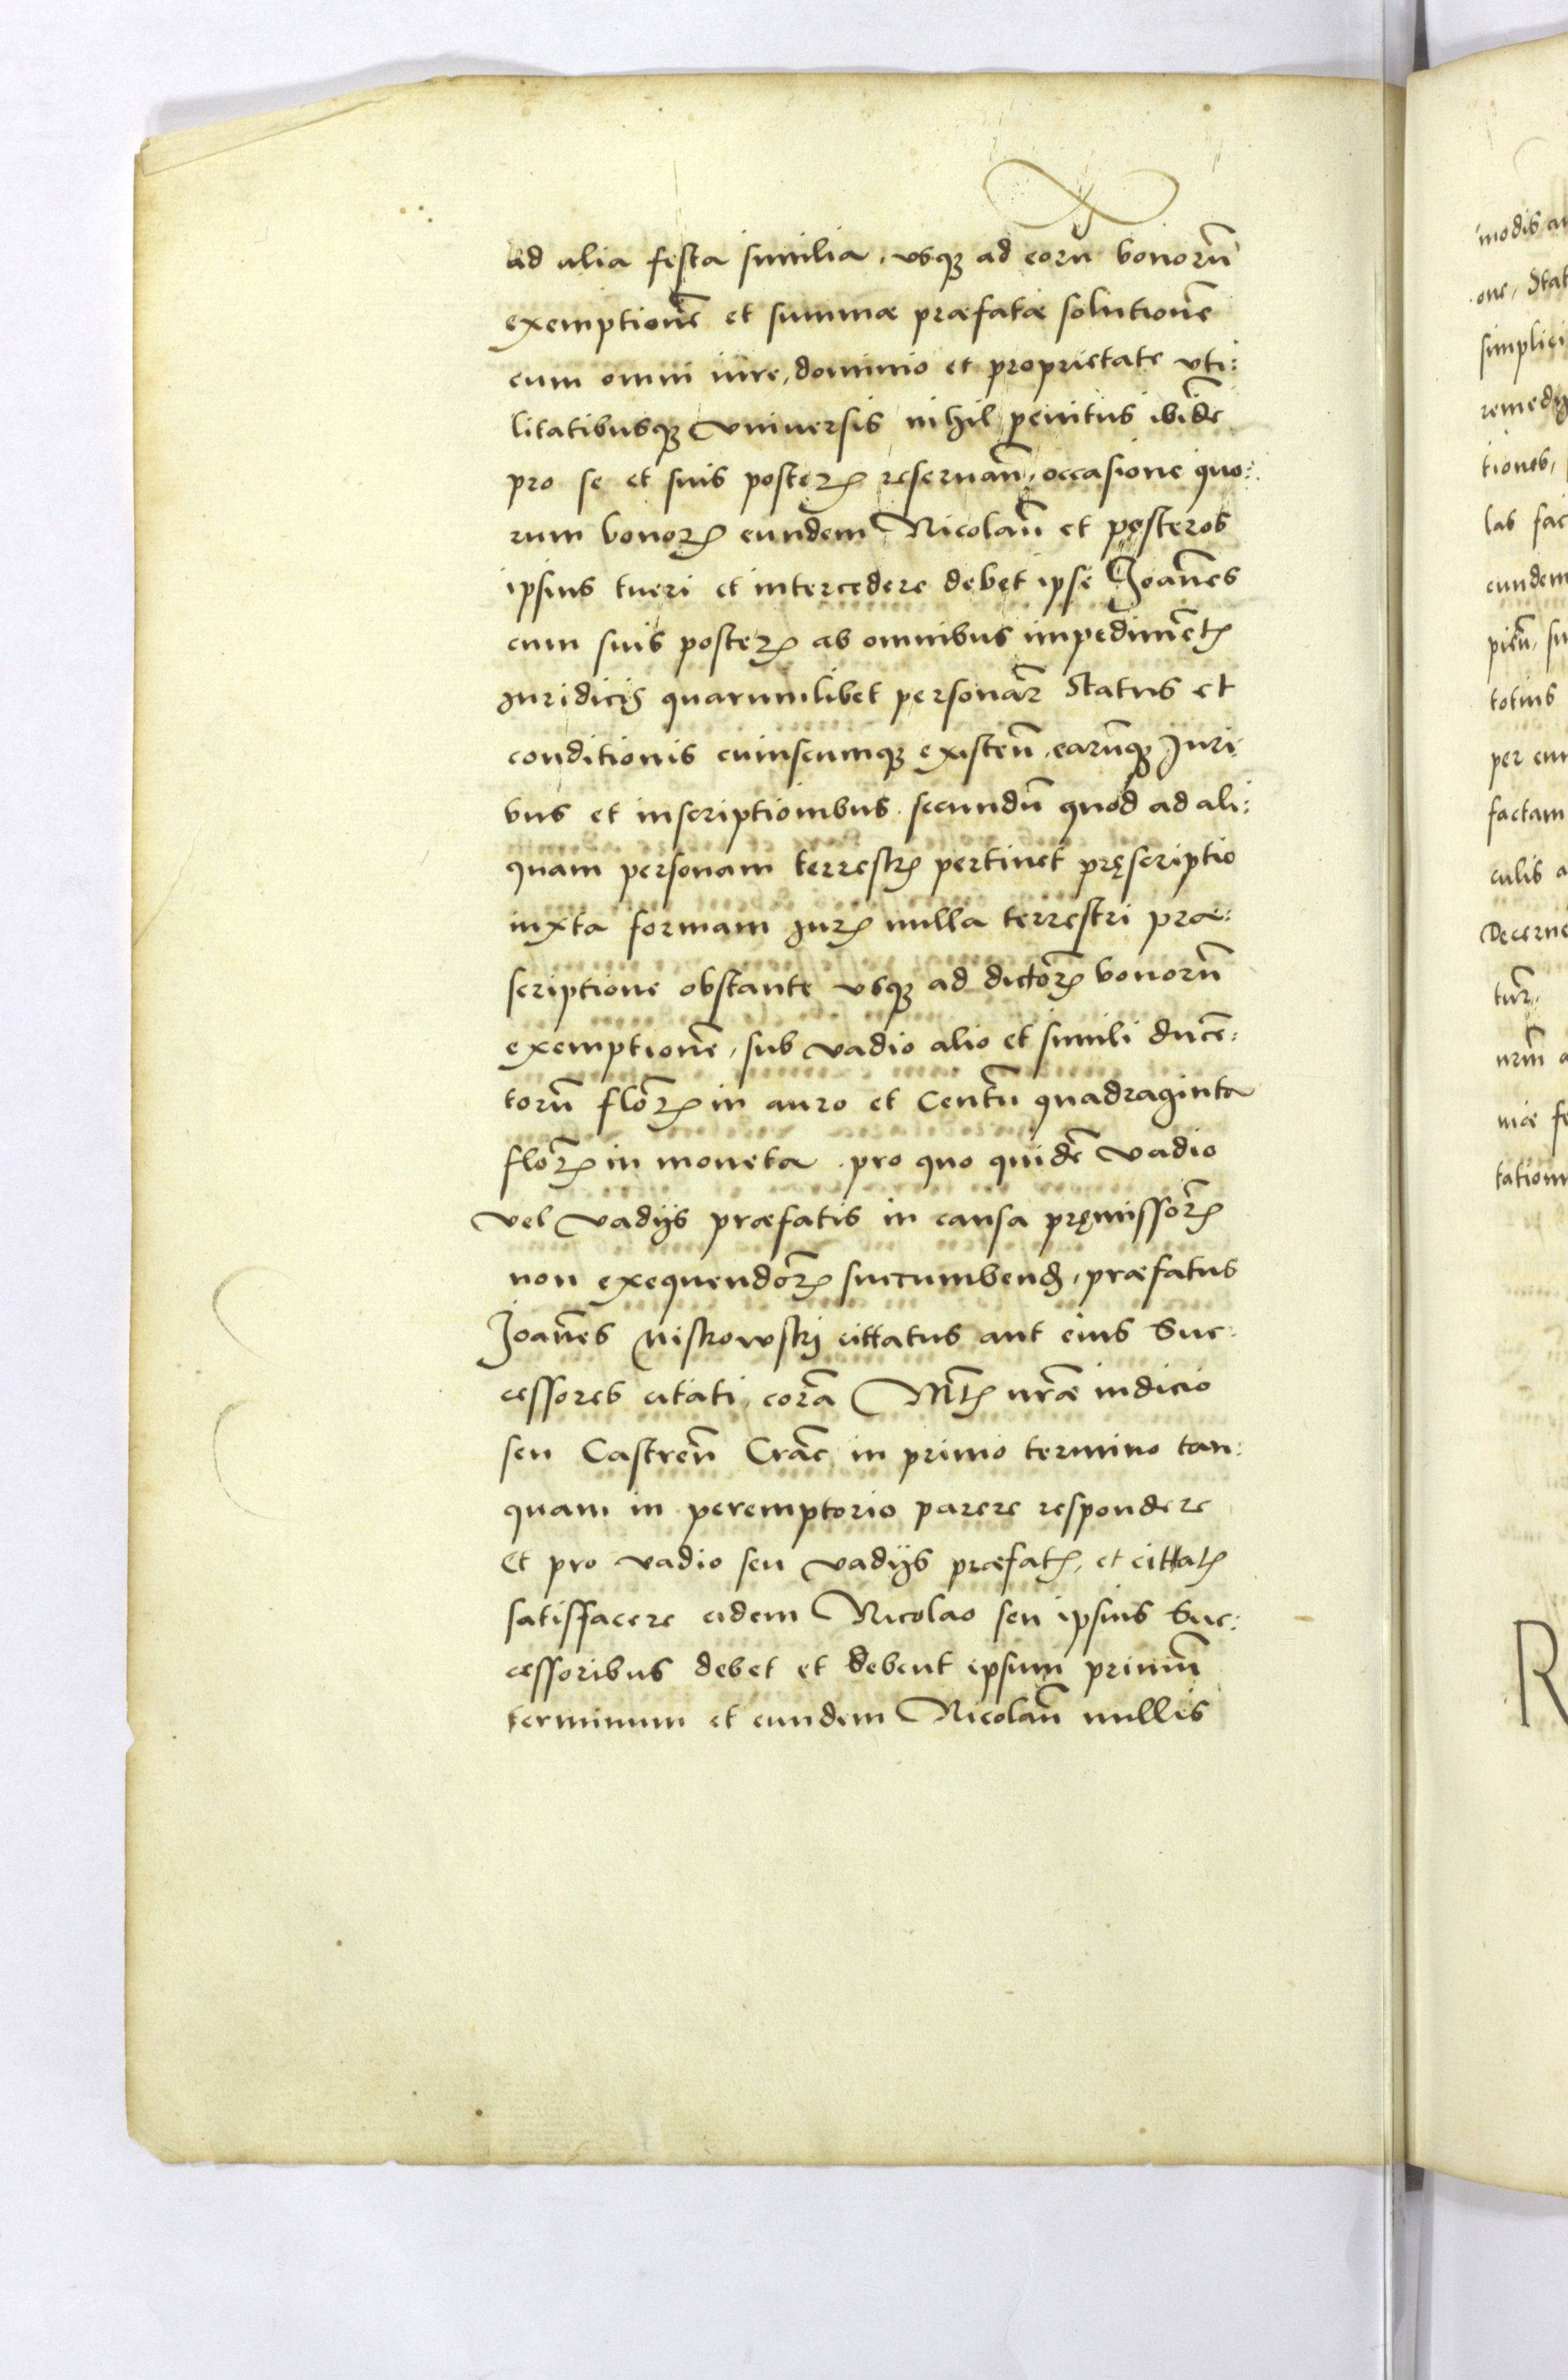 ad alia festa similia, vsq3 ad eorũ bonorũ
exemptionẽ et summæ præfatæ solutionẽ
cum omni iure, dominio et proprietate vti:
litatibusq3 vniuersis nihil penitus ibidẽ
pro se et suis posteꝝ reseruañ, occasione quo:
rum bonoꝝ eundem Nicolaũ et posteros
ipsius tueri et intercedere debet ipse Joañes
cum suis posteꝝ ab omnibus impedimẽtꝭ
Juridicis quarumlibet personaꝝ Status et
conditionis cuiuscumq3 existeñ, earũq3 Juri
bus et inscriptionibus secundũ quod ad ali:
quam personam terrestrꝭ pertinet pręscriptio
iuxta formam Jurꝭ nulla terrestri præ:
scriptione obstante vsq3 ad dictoꝝ bonorũ
exemptionẽ, sub vadio alio et simili ducẽ:
torũ floꝝ in auro et Centũ quadraginta
floꝝ in moneta. pro quo quidẽ vadio
vel vadijs præfatis in causa pręmissoꝝ
non exequendoꝝ succumbenđ, præfatus
Joañes Niskowskj cittatus aut eius Suc:
cessores citati, corã Mtꝭ nr̃æ iudicio
seu Castreñ Crac̃ in primo termino tan:
quam in peremptorio parere respondere
Et pro vadio seu vadijs præfatꝭ, et cittatꝭ
satisfacere eidem Nicolao seu ipsius Suc:
cessoribus debet et debent ipsum primũ
terminum et eundem Nicolaũ nullis
modis
one, Stat
simplici
remedij
tiones,
las fac
eundem
totius
per eun
factam
culis a
Decerne
tur,
nrm̃ a
niæ fe
tation
R